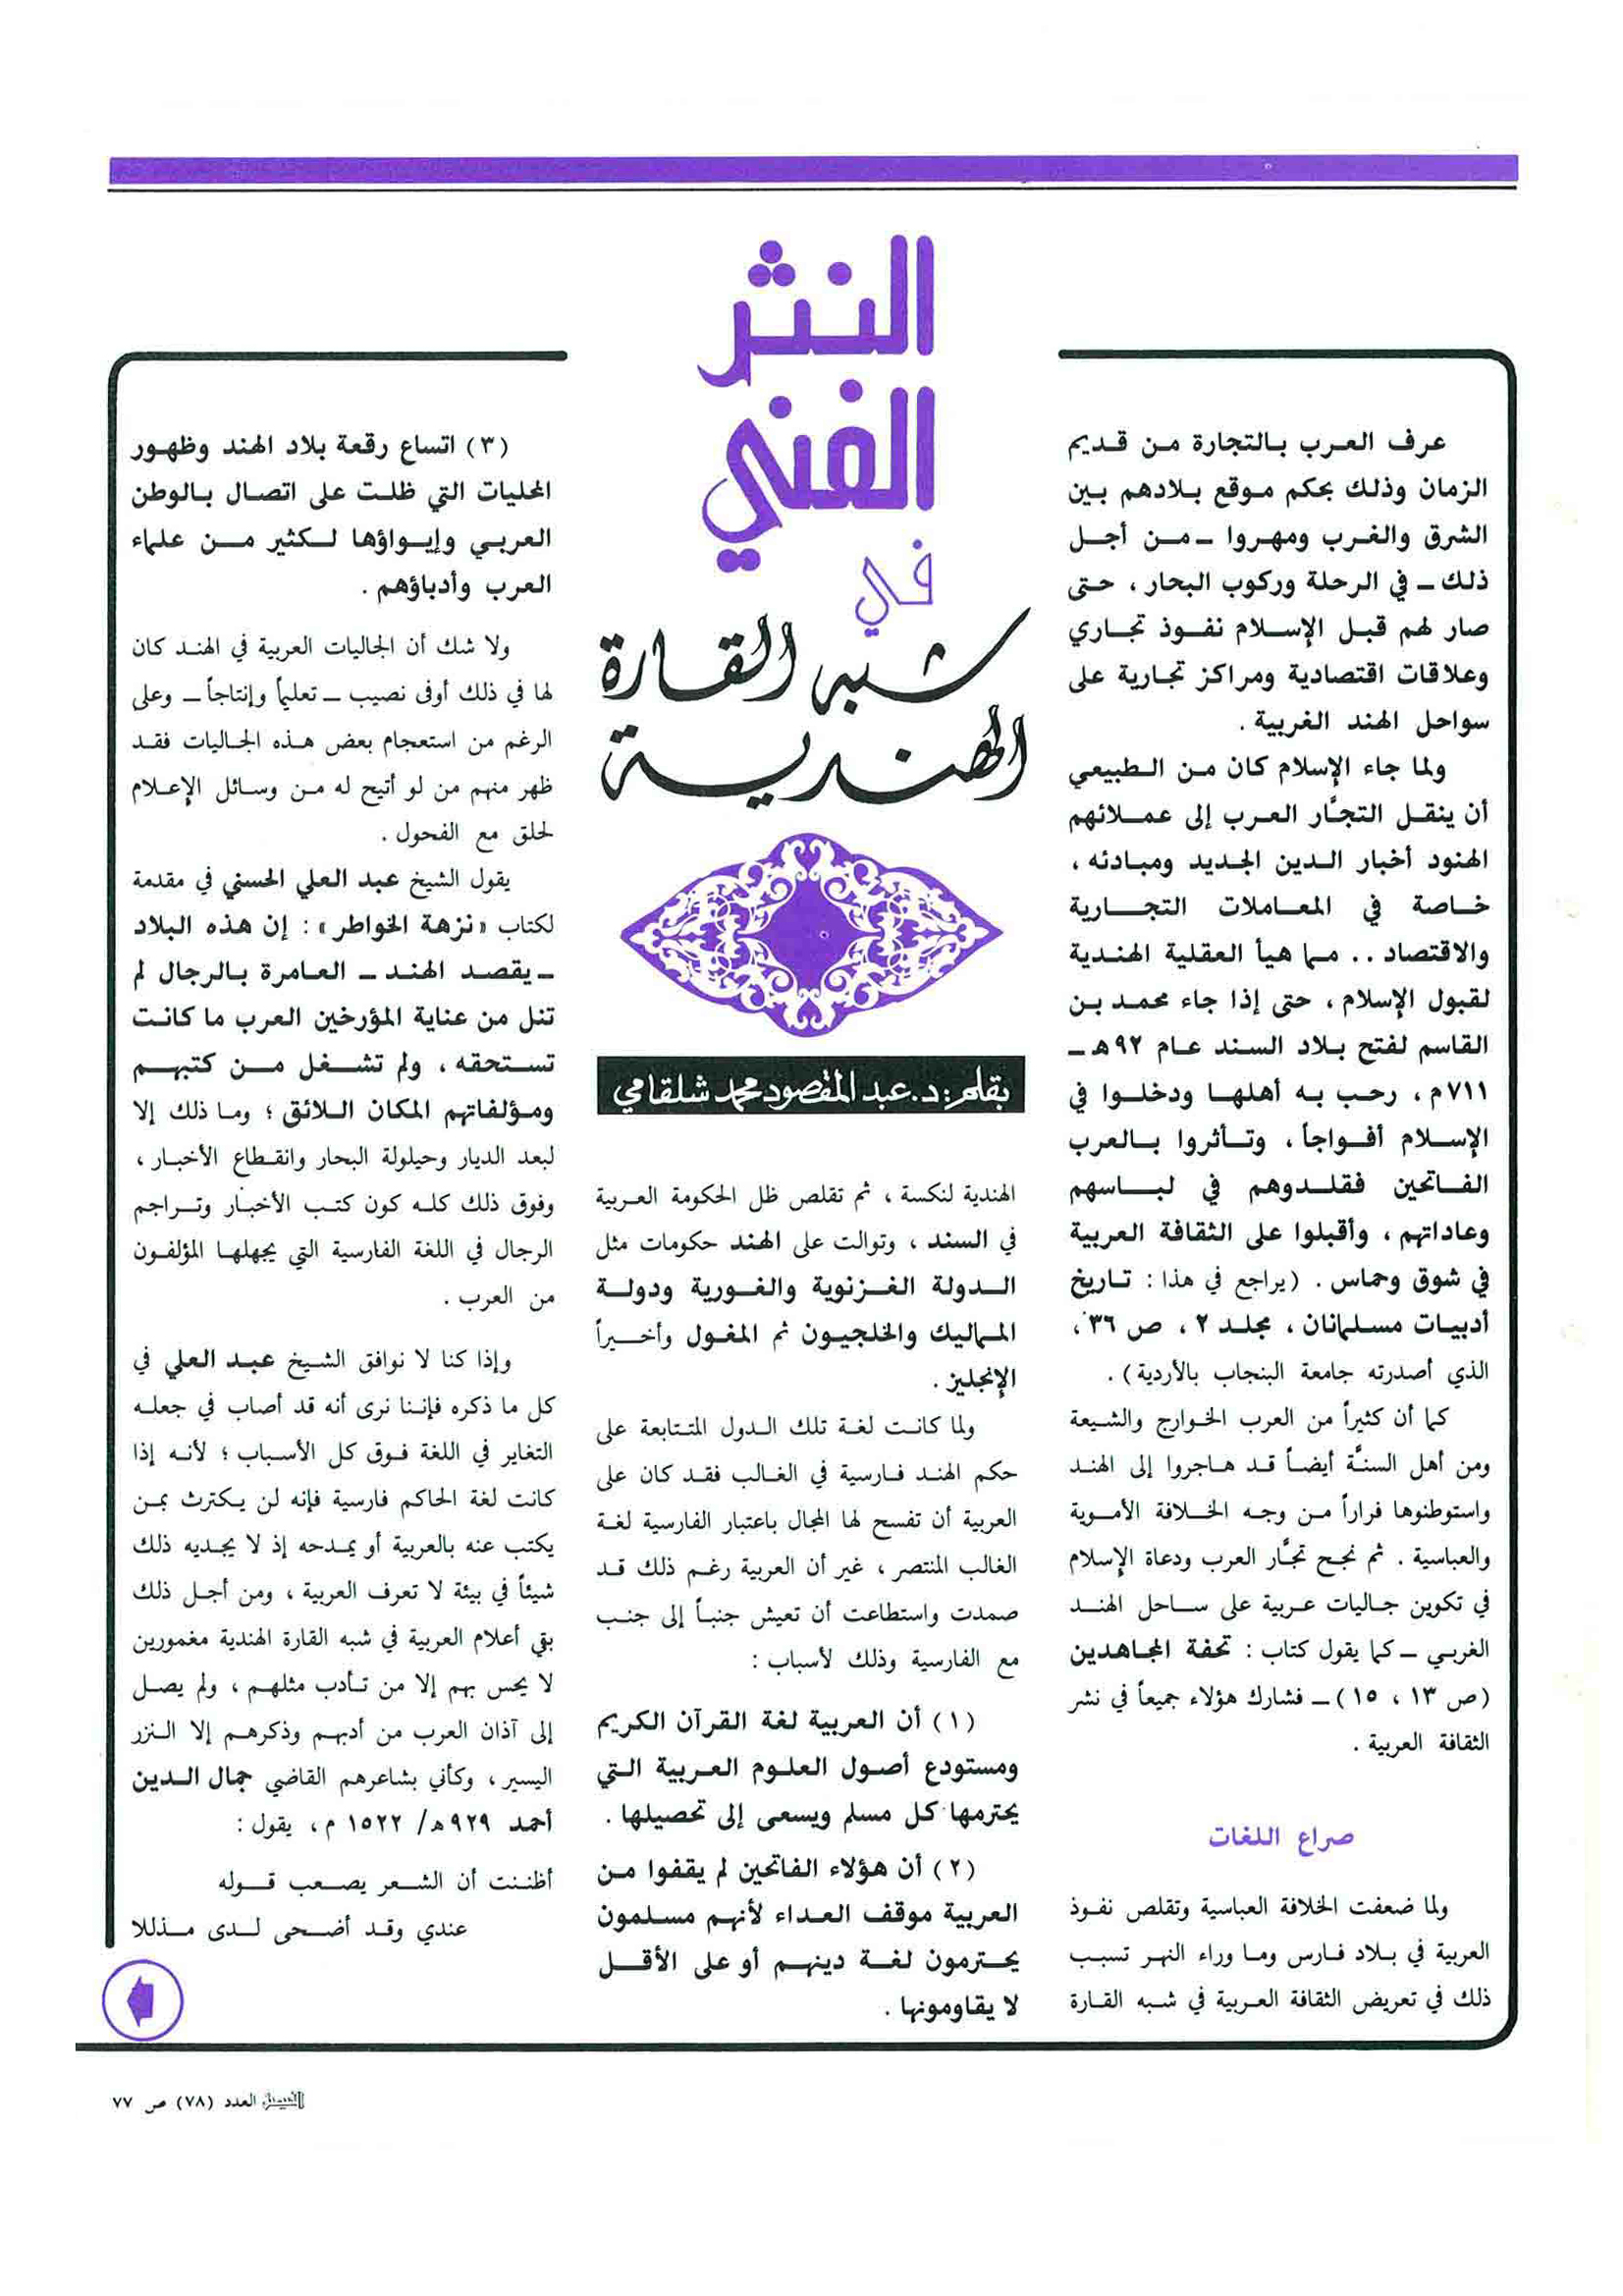 النثر
الفني
في
شبه القارة
الهندية
بقلم: د. عبد المقصود محمد شلقامي
عرف العرب بالتجارة من قديم
الزمان وذلك بحكم موقع بلادهم بين
الشرق والغرب ومهروا ـ من أجل
ذلك ـ في الرحلة وركوب البحار ، حتى
صار لهم قبل الإسلام نفوذ تجاري
وعلاقات اقتصادية ومراكز تجارية على
سواحل الهند الغربية .
ولما جاء الإسلام كان من الطبيعي
أن ينقل التجَّار العرب إلى عملائهم
الهنود أخبار الدين الجديد ومبادئه ،
خاصة في المعاملات التجارية
والاقتصاد .. مما هيأ العقلية الهندية
لقبول الإسلام ، حتى إذا جاء محمد بن
القاسم لفتح بلاد السند عام ٩٢هـ ـ
٧١١م ، رحب به أهلها ودخلوا في
الإسلام أفواجاً ، وتأثروا بالعرب
الفاتحين فقلدوهم في لباسهم
وعاداتهم ، وأقبلوا على الثقافة العربية
في شوق وحماس . (يراجع في هذا : تاريخ
أدبيات مسلمانان ، مجلد ٢ ، ص ٣٦ ،
الذي أصدرته جامعة البنجاب بالأردية) .
كما أن كثيراً من العرب الخوارج والشيعة
ومن أهل السنَّة أيضاً قد هاجروا إلى الهند
واستوطنوها فراراً من وجه الخلافة الأموية
والعباسية . ثم نجح تجَّار العرب ودعاة الإسلام
في تكوين جاليات عربية على ساحل الهند
الغربي ـ كما يقول كتاب : تحفة المجاهدين
(ص ١٣ ، ١٥) ـ فشارك هؤلاء جميعاً في نشر
الثقافة العربية .
صراع اللغات
ولما ضعفت الخلافة العباسية وتقلص نفوذ
العربية في بلاد فارس وما وراء النهر تسبب
ذلك في تعريض الثقافة العربية في شبه القارة
الهندية لنكسة ، ثم تقلص ظل الحكومة العربية
في السند ، وتوالت على الهند حكومات مثل
الدولة الغزنوية والغورية ودولة
المماليك والخلجيون ثم المغول وأخيراً
الإنجليز .
ولما كانت لغة تلك الدول المتتابعة على
حكم الهند فارسية في الغالب فقد كان على
العربية أن تفسح لها المجال باعتبار الفارسية لغة
الغالب المنتصر ، غير أن العربية رغم ذلك قد
صمدت واستطاعت أن تعيش جنباً إلى جنب
مع الفارسية وذلك لأسباب :
(١) أن العربية لغة القرآن الكريم
ومستودع أصول العلوم العربية التي
يحترمها كل مسلم ويسعى إلى تحصيلها .
(٢) أن هؤلاء الفاتحين لم يقفوا من
العربية موقف العداء لأنهم مسلمون
يحترمون لغة دينهم أو على الأقل
لا يقاومونها .
(٣) اتساع رقعة بلاد الهند وظهور
المحليات التي ظلت على اتصال بالوطن
العربي وإيواؤها لكثير من علماء
العرب وأدباؤهم .
ولا شك أن الجاليات العربية في الهند كان
لها في ذلك أوفى نصيب ـ تعليماً وإنتاجاً ـ وعلى
الرغم من استعجام بعض هذه الجاليات فقد
ظهر منهم من لو أتيح له من وسائل الإعلام
لحلق مع الفحول .
يقول الشيخ عبد العلي الحسني في مقدمة
لكتاب «نزهة الخواطر» : إن هذه البلاد
ـ يقصد الهند ـ العامرة بالرجال لم
تنل من عناية المؤرخين العرب ما كانت
تستحقه ، ولم تشغل من كتبهم
ومؤلفاتهم المكان اللائق ؛ وما ذلك إلا
لبعد الديار وحيلولة البحار وانقطاع الأخبار ،
وفوق ذلك كله كون كتب الأخبار وتراجم
الرجال في اللغة الفارسية التي يجهلها المؤلفون
من العرب .
وإذا كنا لا نوافق الشيخ عبد العلي في
كل ما ذكره فإننا نرى أنه قد أصاب في جعله
التغاير في اللغة فوق كل الأسباب ؛ لأنه إذا
كانت لغة الحاكم فارسية فإنه لن يكترث بمن
يكتب عنه بالعربية أو يمدحه إذ لا يجديه ذلك
شيئاً في بيئة لا تعرف العربية ، ومن أجل ذلك
بقي أعلام العربية في شبه القارة الهندية مغمورين
لا يحس بهم إلا من تأدب مثلهم ، ولم يصل
إلى آذان العرب من أدبهم وذكرهم إلا النزر
اليسير ، وكأني بشاعرهم القاضي جمال الدين
أحمد ٩٢٩هـ/ ١٥٢٢ م ، يقول :
أظننت أن الشعر يصعب قوله
عندي وقد أضحى لدى مذللا
الفيصل العدد (٧٨) ص ٧٧